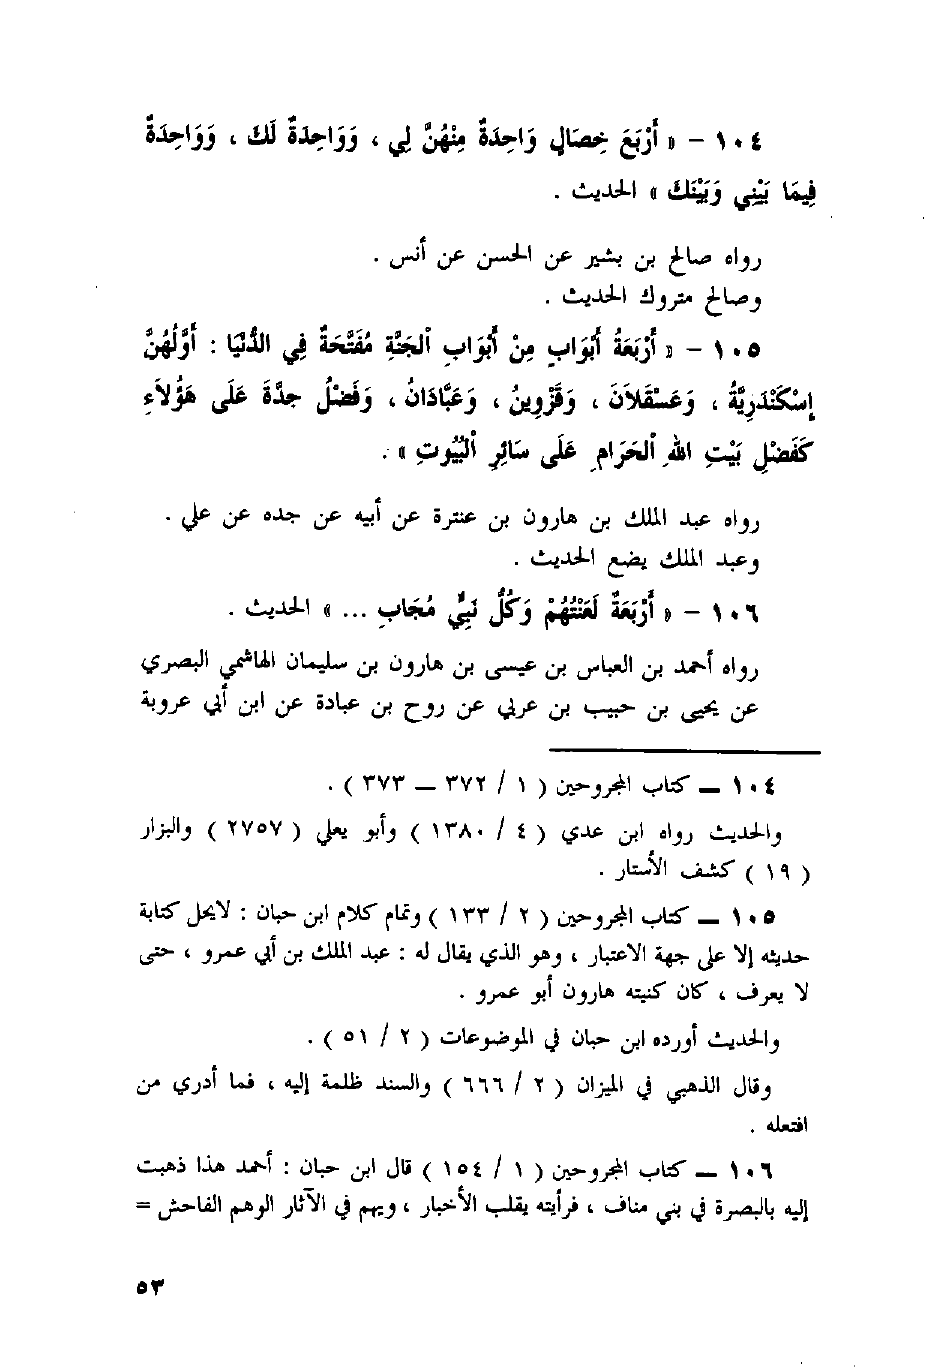 ١٠٤ - « أَرْبَعَ خِصَالٍ وَاحِدَةٌ مِنْهُنَّ لِي ، وَوَاحِدَةٌ لَكَ ، وَوَاحِدَةٌ
فِيمَا بَيْنِي وَبَيْنَكَ » الحديث .
رواه صالح بن بشير عن الحسن عن أنس .
وصالح متروك الحديث .
١٠٥ - « أَرْبَعَةُ أَبْوَابٍ مِنْ أَبْوَابِ الْجَنَّةِ مُفَتَّحَةٌ فِي الدُّنْيَا : أَوَّلُهُنَّ
إِسْكَنْدَرِيَّةُ ، وَعَسْقَلَانَ ، وَقَزْوِينُ ، وَعَبَّادَانُ ، وَفَضْلُ جِدَّةَ عَلَى هَؤُلَاءِ
كَفَضْلِ بَيْتِ اللهِ الْحَرَامِ عَلَى سَائِرِ الْبُيُوتِ » .
رواه عبد الملك بن هارون بن عنترة عن أبيه عن جده عن علي .
وعبد الملك يضع الحديث .
١٠٦ - « أَرْبَعَةٌ لَعَنْتُهُمْ وَكُلُّ نَبِيٍّ مُجَابٍ ... » الحديث .
رواه أحمد بن العباس بن عيسى بن هارون بن سليمان الهاشمي البصري
عن يحيى بن حبيب بن عربي عن روح بن عبادة عن ابن أبي عروبة
١٠٤ ــ كتاب المجروحين ( ١ / ٣٧٢ ــ ٣٧٣ ) .
والحديث رواه ابن عدي ( ٤ / ١٣٨٠ ) وأبو يعلي ( ٢٧٥٧ ) والبزار
( ١٩ ) كشف الأستار .
١٠٥ ــ كتاب المجروحين ( ٢ / ١٣٣ ) وتمام كلام ابن حبان : لايحل كتابة
حديثه إلا على جهة الاعتبار ، وهو الذي يقال له : عبد الملك بن أبي عمرو ، حتى
لا يعرف ، كان كنيته هارون أبو عمرو .
والحديث أورده ابن حبان في الموضوعات ( ٢ / ٥١ ) .
وقال الذهبي في الميزان ( ٢ / ٦٦٦ ) والسند ظلمة إليه ، فما أدري من
افتعله .
١٠٦ ــ كتاب المجروحين ( ١ / ١٥٤ ) قال ابن حبان : أحمد هذا ذهبت
إليه بالبصرة في بني مناف ، فرأيته يقلب الأخبار ، ويهم في الآثار الوهم الفاحش =
٥٣